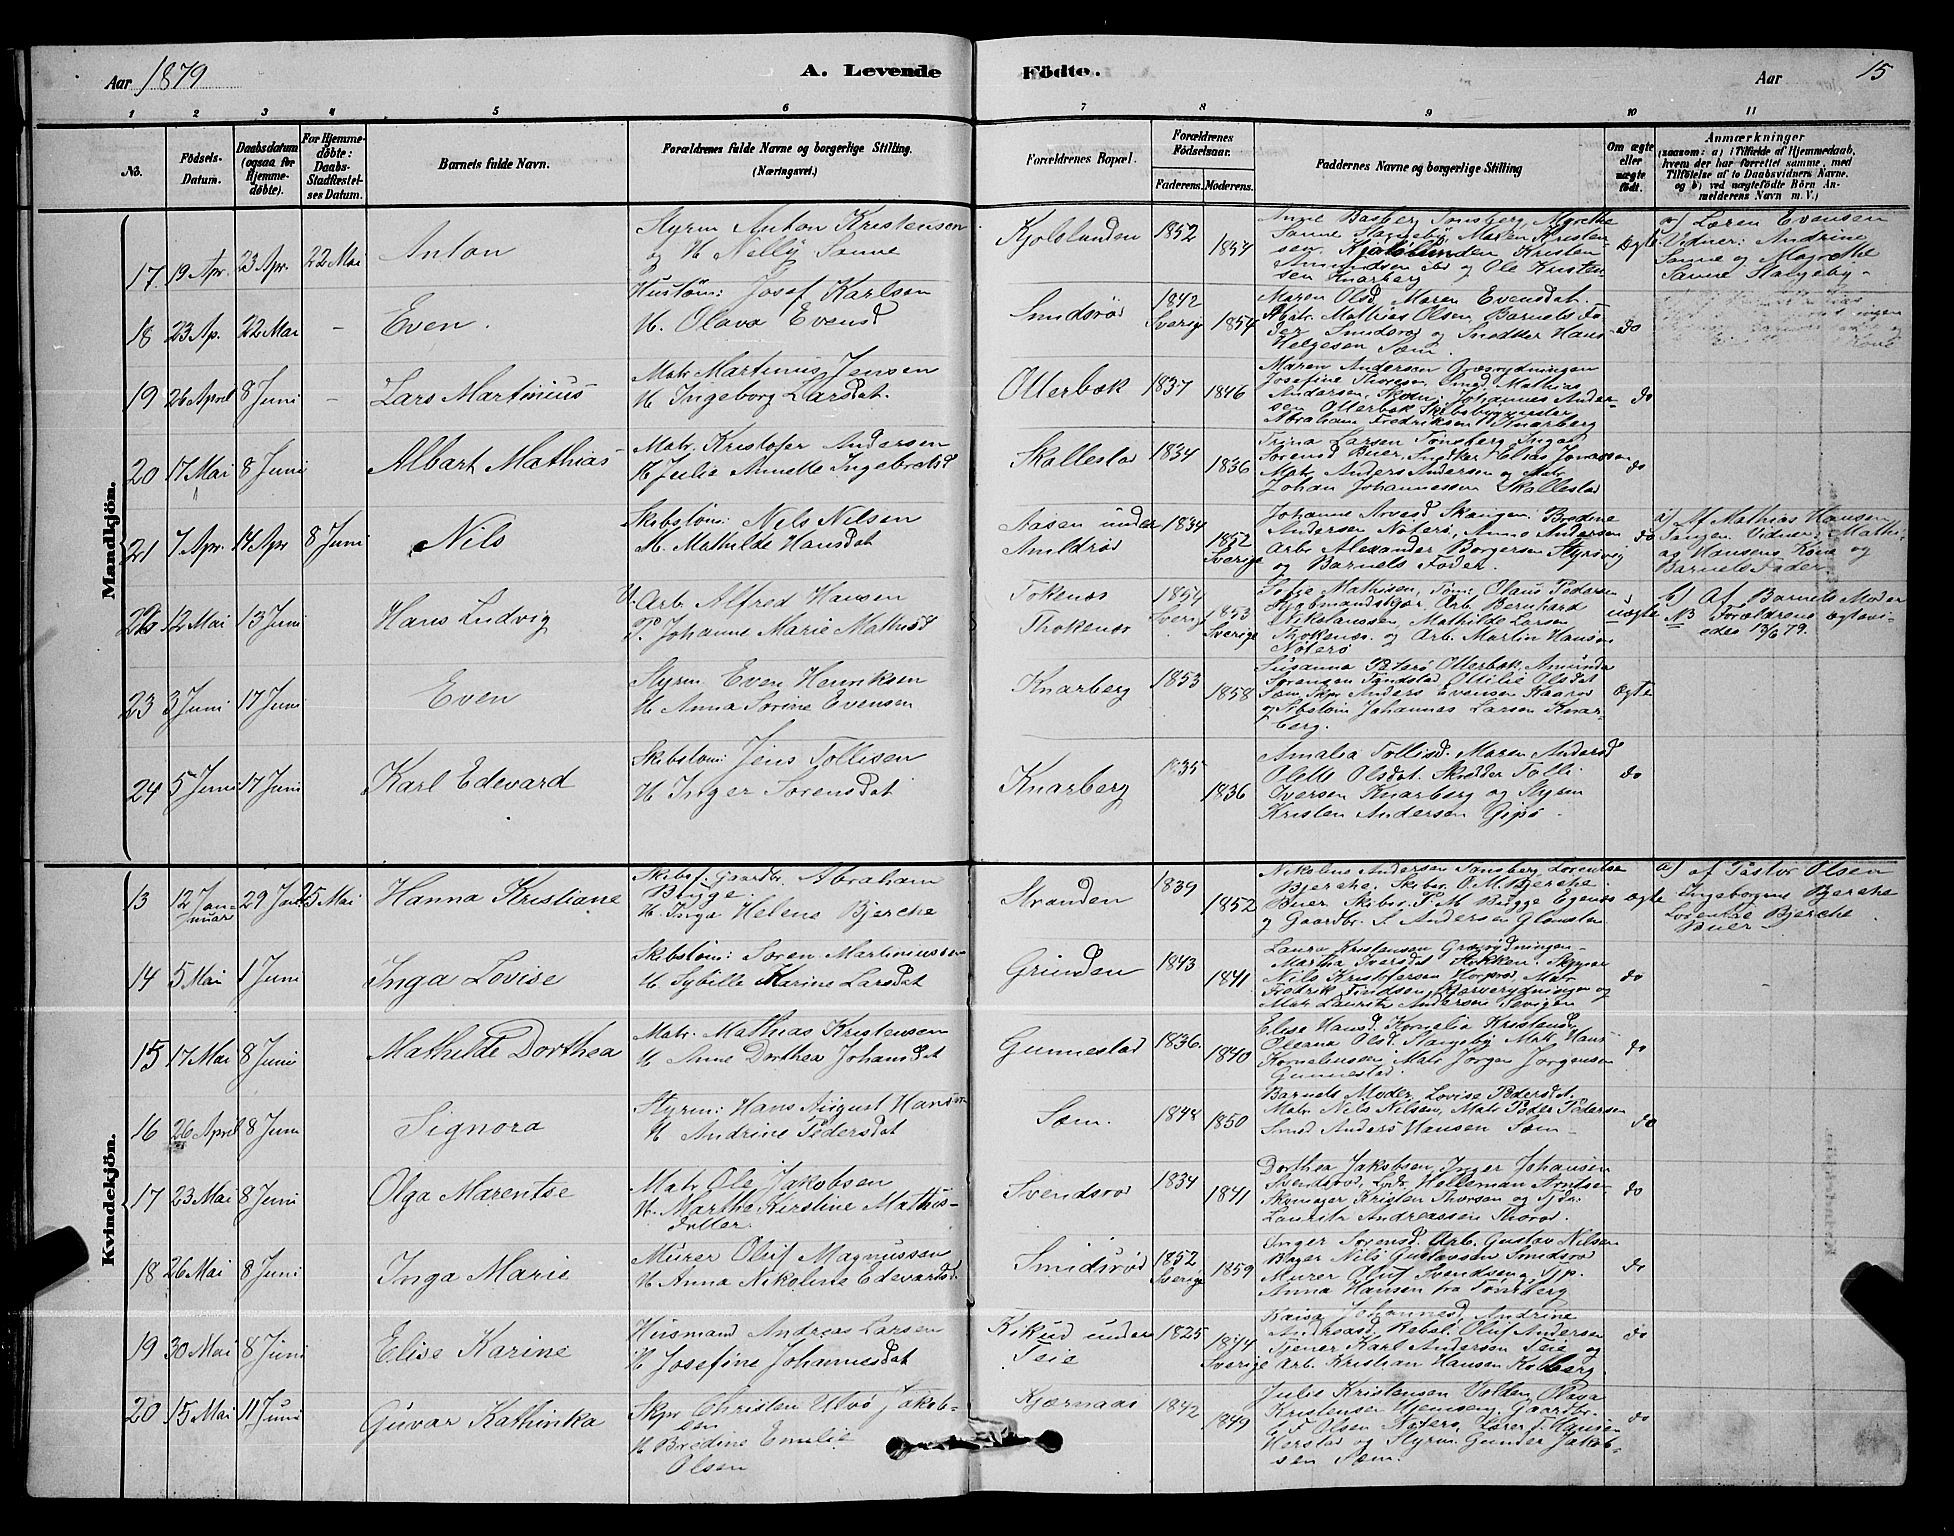 Aar 1879
A. Levende Fødte.
Aar 15
1 2 3 4 5 6 7 8 9 10 11
No.
Fødsels-Datum.
Daabsdatum (ogsaa for Hjemme-døbte).
For Hjemme-døbte: Daabs-Stadfæstel-ses Datum.
Barnets fulde Navn.
Forældrenes fulde Navne og borgerlige Stilling. (Næringsvei.)
Forældrenes Bopæl.
Forældrenes Fødselsaar.
Faderens. Moderens.
Faddernes Navne og borgerlige Stilling
Om ægte eller uægte født.
Anmærkninger
(saasom: a) i Tilfælde af Hjemmedaab, hvem der har forrettet samme, med Tilføielse af to Daabsvidners Navne. og b) ved uægtefødte Børn An-melderens Navn m. V.)
Mandkjøn.
17. 19 Apr. 23 Apr. 22 Mai Anton
Styrm Anton Kristensen
og H. Nelly Sanne
Kjolslunden 1852 1854
Basberg Tønsberg, Magrethe
Sanne Slagebÿ, Maren Kristen
sen. Kjølslunden Kristen
Amundsen ibd og Ole Kristen
sen Knarberg
Ægte
a) Læren Evensen
Vidner: Andrine
Sanne og Magrethe
Sanne Slageby-
18 23 Ap. 22 Mai - Even.
Hustøm: Josef Karlsen
H. Olava Evensd
Smidsrød 1842 Sverig 1854
Maren Olsd, Maren Evensdat.
Matr. Mathias Olsen, Barnets Fa
der Smidsrød og Snedker Hans
Helgesen Sæm.
do
19 26 April 8 Juni - Lars Martinius
Matr Martinius Jensen
H. Ingeborg Larsdat.
Otterbæk 1837 1846
Maren Andersen Græsrydningen
Josefine Thoresen, Smed Mathias
Andersen, Johannes Ander-
sen Otterbæk Skibsbygmester
Abraham Fredriksen Knarberg
do
20 17 Mai 8 Juni Albart Mathias
Matr. Kristofer Andersen
H. Julie Annette Ingebretsd
Skallestad 1834 1836
Trina Larsen Tønsberg Inga
Sørensd Buer, Snedker Helias
Matr Anders Andersen og Matr
Johan Johannessen Skallestad
do
21 7 Apr. 14 Apr 8 Juni Nils
Skibstøm: Nels Nelsen
H. Mathilde Hansdat
Aasen under
Amildrød
1834 1852 Sverige
Johanne Arvesd Skangen. Bredine
Andersen Nøterø, Anne Andersen
Arb. Alexander Borgersen Styrsvig
og Barnets Fader.
do
a) Af Mathias Hansen
Tangen Vidner: Mathi-
as Hansens Kone og
Barnets Fader
22 12 Mai 13 Juni Hans Ludvig
U. Arb. Alfred Hansen
P. Johanne Marie Mathisd
Tokenæs
Thokenæs
1854 Sverig 1853 Sverige
Sofie Mathisen, Tøm. Olaus Pedersen
Kjøbmandskjær, Arb. Bernhard
Nikolaissen, Mathilde Larsen
Thokenæs. og Arb. Martin Hansen
Nøterø
uægte
b) Af Barnets Moder
NB Forældrene ægtevi-
edes 13/6 79.
23 3 Juni 17 Juni Even
Styrm Even Henriksen
H. Anna Sørine Evensen
Knarberg 1853 1858
Susanna Otterbæk. Amunda
Sørensen Otilie Olsdat
Sæm, Skpr Anders Evensen Kaarød
og Skbstøm Johannes Larsen Knar-
berg.
ægte
24 5 Juni 17 Juni Karl Edevard
Skibstøm: Jens Tollisen
H. Inger Sørensdat
Knarberg 1835 1836
Amalia Tollisd. Maren Andersd
Olette Olsdat. Skrædder Tolli
Iversen Knarberg og Styrm
Kristen Andersen Gipø.
do
Kvindekjøn.
13 12 Januar 29 Jan. 25 Mai Hanna Kristiane
Skibsf. gaardbr. Abraham
Bugge
H. Inga Helene Bjerche
Stranden 1839 1852
Nikoline Andersen Tønsberg, Lorentse
Bjerche. Skibsr. O. M. Bjerche.
Buer. Skibsr. F. M. Bugge Egenæs
og Gaardbr. S Andersen
ægte
a) af Pastor Olsen
Ingeborgine Bjerche
Lorentse Bjerche
Buer
14 5 Mai 1 Juni Inga Lovise
Skibstøm: Søren Martiniussen
H. Sybille Karine Larsdat
Grinden 1843 1841
Laura Kristensen Græsrydningen-
Martha Iversdt Stokken. Skipper
Nils Kristofersen Matr
Fredrik Findsen, og
Matr Lauritz Andersen
do
15 17 Mai 8 Juni Mathilde Dorthea
Matr. Mathias Kristensen
H Anne Dorthea Johansdat
Gunnestad 1836. 1840
Elise Hansd. Kornelia Kristensd
Oleana Olsd. Slagebÿ Matr. Hans
Kornelinssen, Matr Jørgen Jørgensen
Gunnestad.
do
16 26 April 8 Juni Signora
Styrm: Hans August Hansen
H Andrine Pedersdat
Sæm. 1848 1850
Barnets Moder, Lovise Pedersdat,
Matr. Nils Nilsen, Matr Peder Pedersen
Smed Anders Hansen Sæm-
do
17 23 Mai 8 Juni Olga Marentse
Matr Ole Jakobsen
H. Marthe Kirstine Mathis-
datter.
Svendsrød 1834 1841
Dorthea Jakobsen, Inger Johansen
Svendsrød, Helleman
Skomager Kristen Thorsen og
Lauritz Andreassen Thorød.
do
18 26 Mai 8 Juni Inga Marie
Murer Oluf Magnussen
H. Anna Nikoline Edevardsd
Smidsrød 1852 Sverige 1859
Inger Sørensd. Arb. Gustav Nilsen
Bager Nils Gustavsen Smidsrød
Murer Oluf Svendsen,
Anna Hansen fra Tønsberg
do
19 30 Mai 8 Juni Elise Karine
Husmand Andreas Larsen
H Josefine Johannesdat
Kikud under
Teie
1825 Sverige
Kaisa Johannesd, Andrine
Andreasd Rebsl. Oluf Andersen
Tjener Karl Andersen Teie og
Arb. Kristian Hansen Kolberg
do
20 15 Mai 11 Juni Guvar Kathinka
Skpr Christen Utvø Jakob-
sen
H Bredine Emilie
Olsen
Kjærnaas 1842 1849
Julie Kristensen Volden, Olava
Kristensen Gaardbr.
C. F. Olsen Nøterø, Lærer F. Hansen
Herstad og Styrm. Gunder Jakob-
sen Sæm.
do